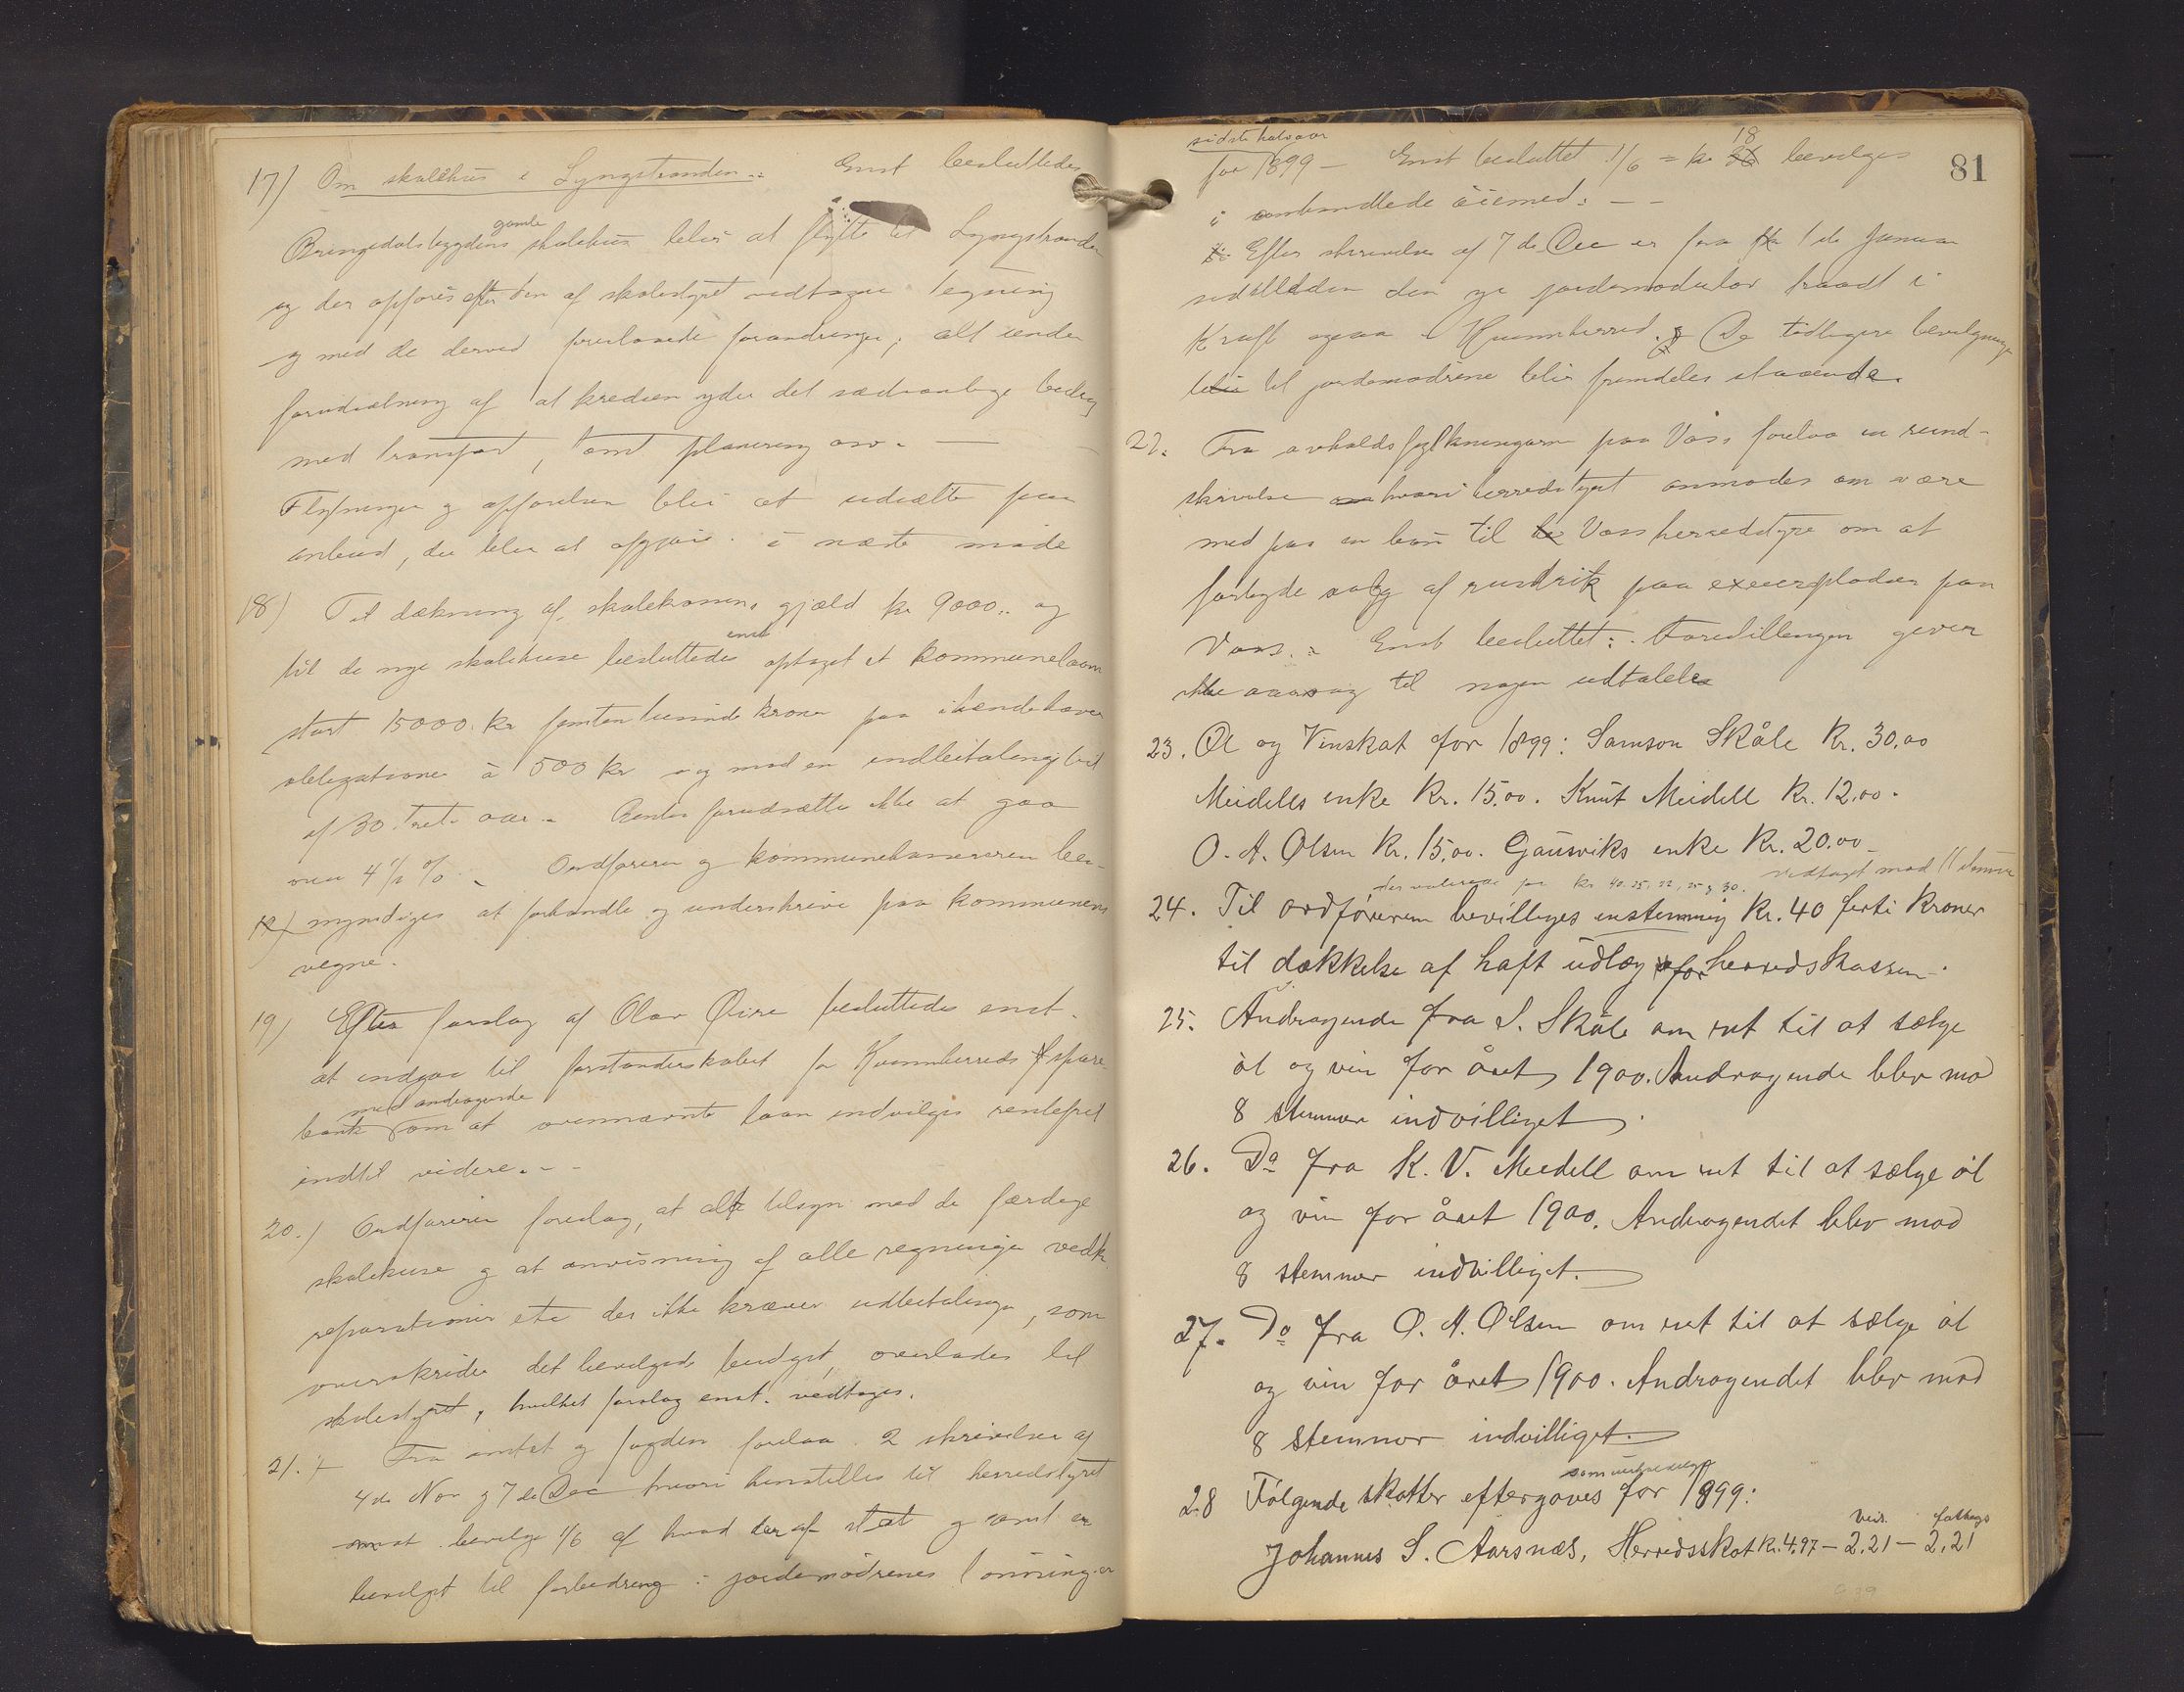 17) Om skolehus i Lyngstranden.. Enst besluttedes
Bringedalsbygdens gamle skolehus blir at flytte til Lyngstranden
og der opføres efter den af skolestyret vedtagne tegning
og med de derved foreslaaede forandringer; alt under
forudsætning af at kredsen yder det sædvanlige bidrag
med transport, tomt planering osv. —
Flytningen og opførelsen blir at udsætte paa
anbud, der blir at afgjøre i næste møde
18) Til dækning af skolekassens gjæld kr 9000.. og
til de nye skolehuse besluttedes enst optaget et kommunelaan
stort 15000 kr femten tusinde kroner paa ihændehaver
obligationer à 500 kr og med en indbetalingstid
af 30 treti aar. Renten forudsættes ikke at gaa
over 4½ %. Ordføreren og kommunekassereren be-
myndiges at forhandle og underskrive paa kommunens
vegne.
19) Efter forslag af Olav Øire besluttedes enst.
at indgaa til forstanderskabet for Kvamherreds spare
med andragende
bank om at ovennævnte laan indvilges rentefrit
indtil videre. - -
20.) Ordføreren foreslog, at alt tilsyn med de færdige
skolehuse og at anvisning af alle regninger vedk.
reparationer etc der ikke kræver udbetalinger, som
overskrider det bevilgede budget, overlades til
skolestyret, hvilket forslag enst. vedtoges.
21. Fra amtet og fogden forelaa 2 skrivelser af
4de Nov og 7de Dec hvori henstilles til herredstyret
at bevilge 1/6 af hvad der af stat og amt er
bevilget til forbedring i jordemødrenes lønninger
81
sidste halvaar
for 1899 — Enst besluttet 1/6 = kr 18 bevilges
i omhandlede øiemed. — -
Efter skrivelse af 7de Dec er fra 1ste Januar
sidstleden den nye jordemoderlov traadt i
Kraft ogsaa i Kvamherred. De tidligere bevilgninger
til jordemødrene blir fremdeles staaende.
22. Fra avholdsfylkningarne paa Voss forelaa en rund-
skrivelse hvori herredstyret anmodes om være
med paa en bøn til Voss herredstyre om at
forbyde salg af rusdrik paa exercerpladsen paa
Voss. Enst besluttet: Forestillingen giver
ikke aarsag til nogen udtalelse
23. Øl og Vinskat for 1899: Samson Skåle Kr. 30,00
Meidells enke Kr. 15,00. Knut Meidell Kr. 12,00.
O. A. Olsen Kr. 15,00. Gausviks enke Kr. 20.00 —
vedtaget mod 11 stemmer
24. Til ordføreren bevilliges enstemmig Kr. 40 førti Kroner
til dækkelse af haft udlæg for herredskassen.
25. Andragende fra S. Skåle om ret til at sælge
øl og vin for året 1900. Andragende blev mod
8 stemmer indvilliget.
26. Do fra K. V. Meidell om ret til at sælge øl
og vin for året 1900. Andragendet blev mod
8 stemmer indvilliget.
27. Do fra O. A. Olsen om ret til at sælge øl
og vin for året 1900. Andragendet blev mod
8 stemmer indvilliget.
28 Følgende skatter eftergaves for 1899:
veis. fattigs
Johannes S. Aarsnæs, Herredsskat kr. 4.97 — 2.21 — 2,21